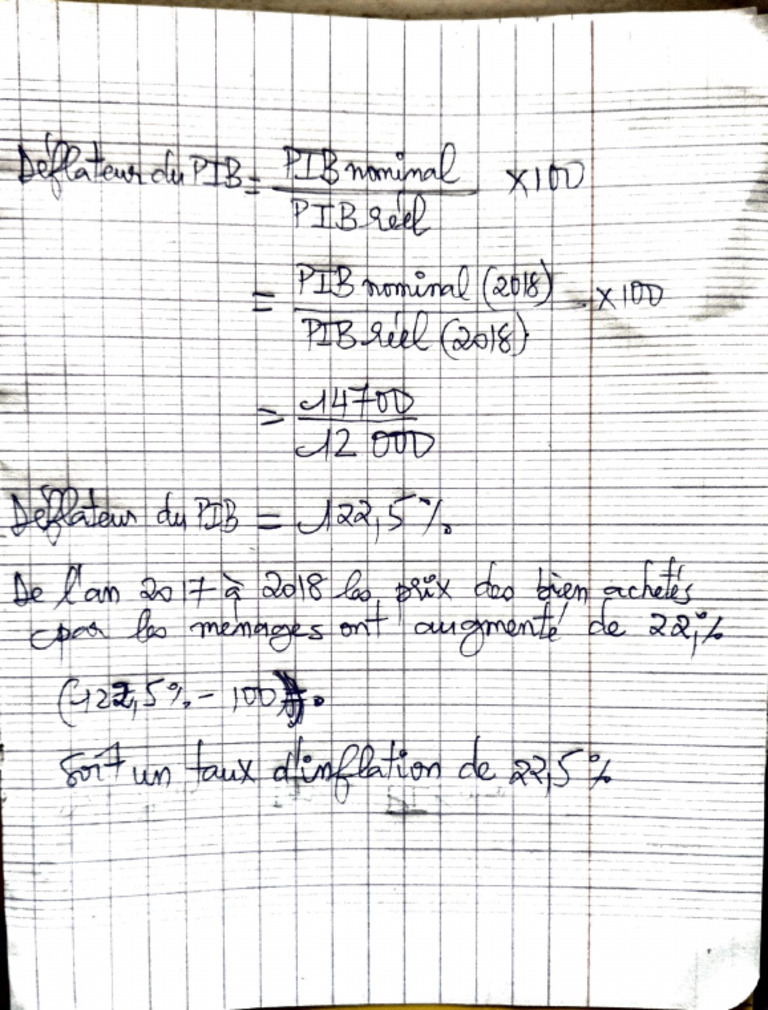 Déflateur du PIB = PIB nominal / PIB réel × 100
= PIB nominal (2018) / PIB réel (2018) × 100
= 14700 / 12 000
Déflateur du PIB = 122,5%.
De l'an 2017 à 2018 les prix des bien achetés
par les ménages ont augmenté de 22,%
(122,5% - 100).
Soit un taux d'inflation de 22,5%